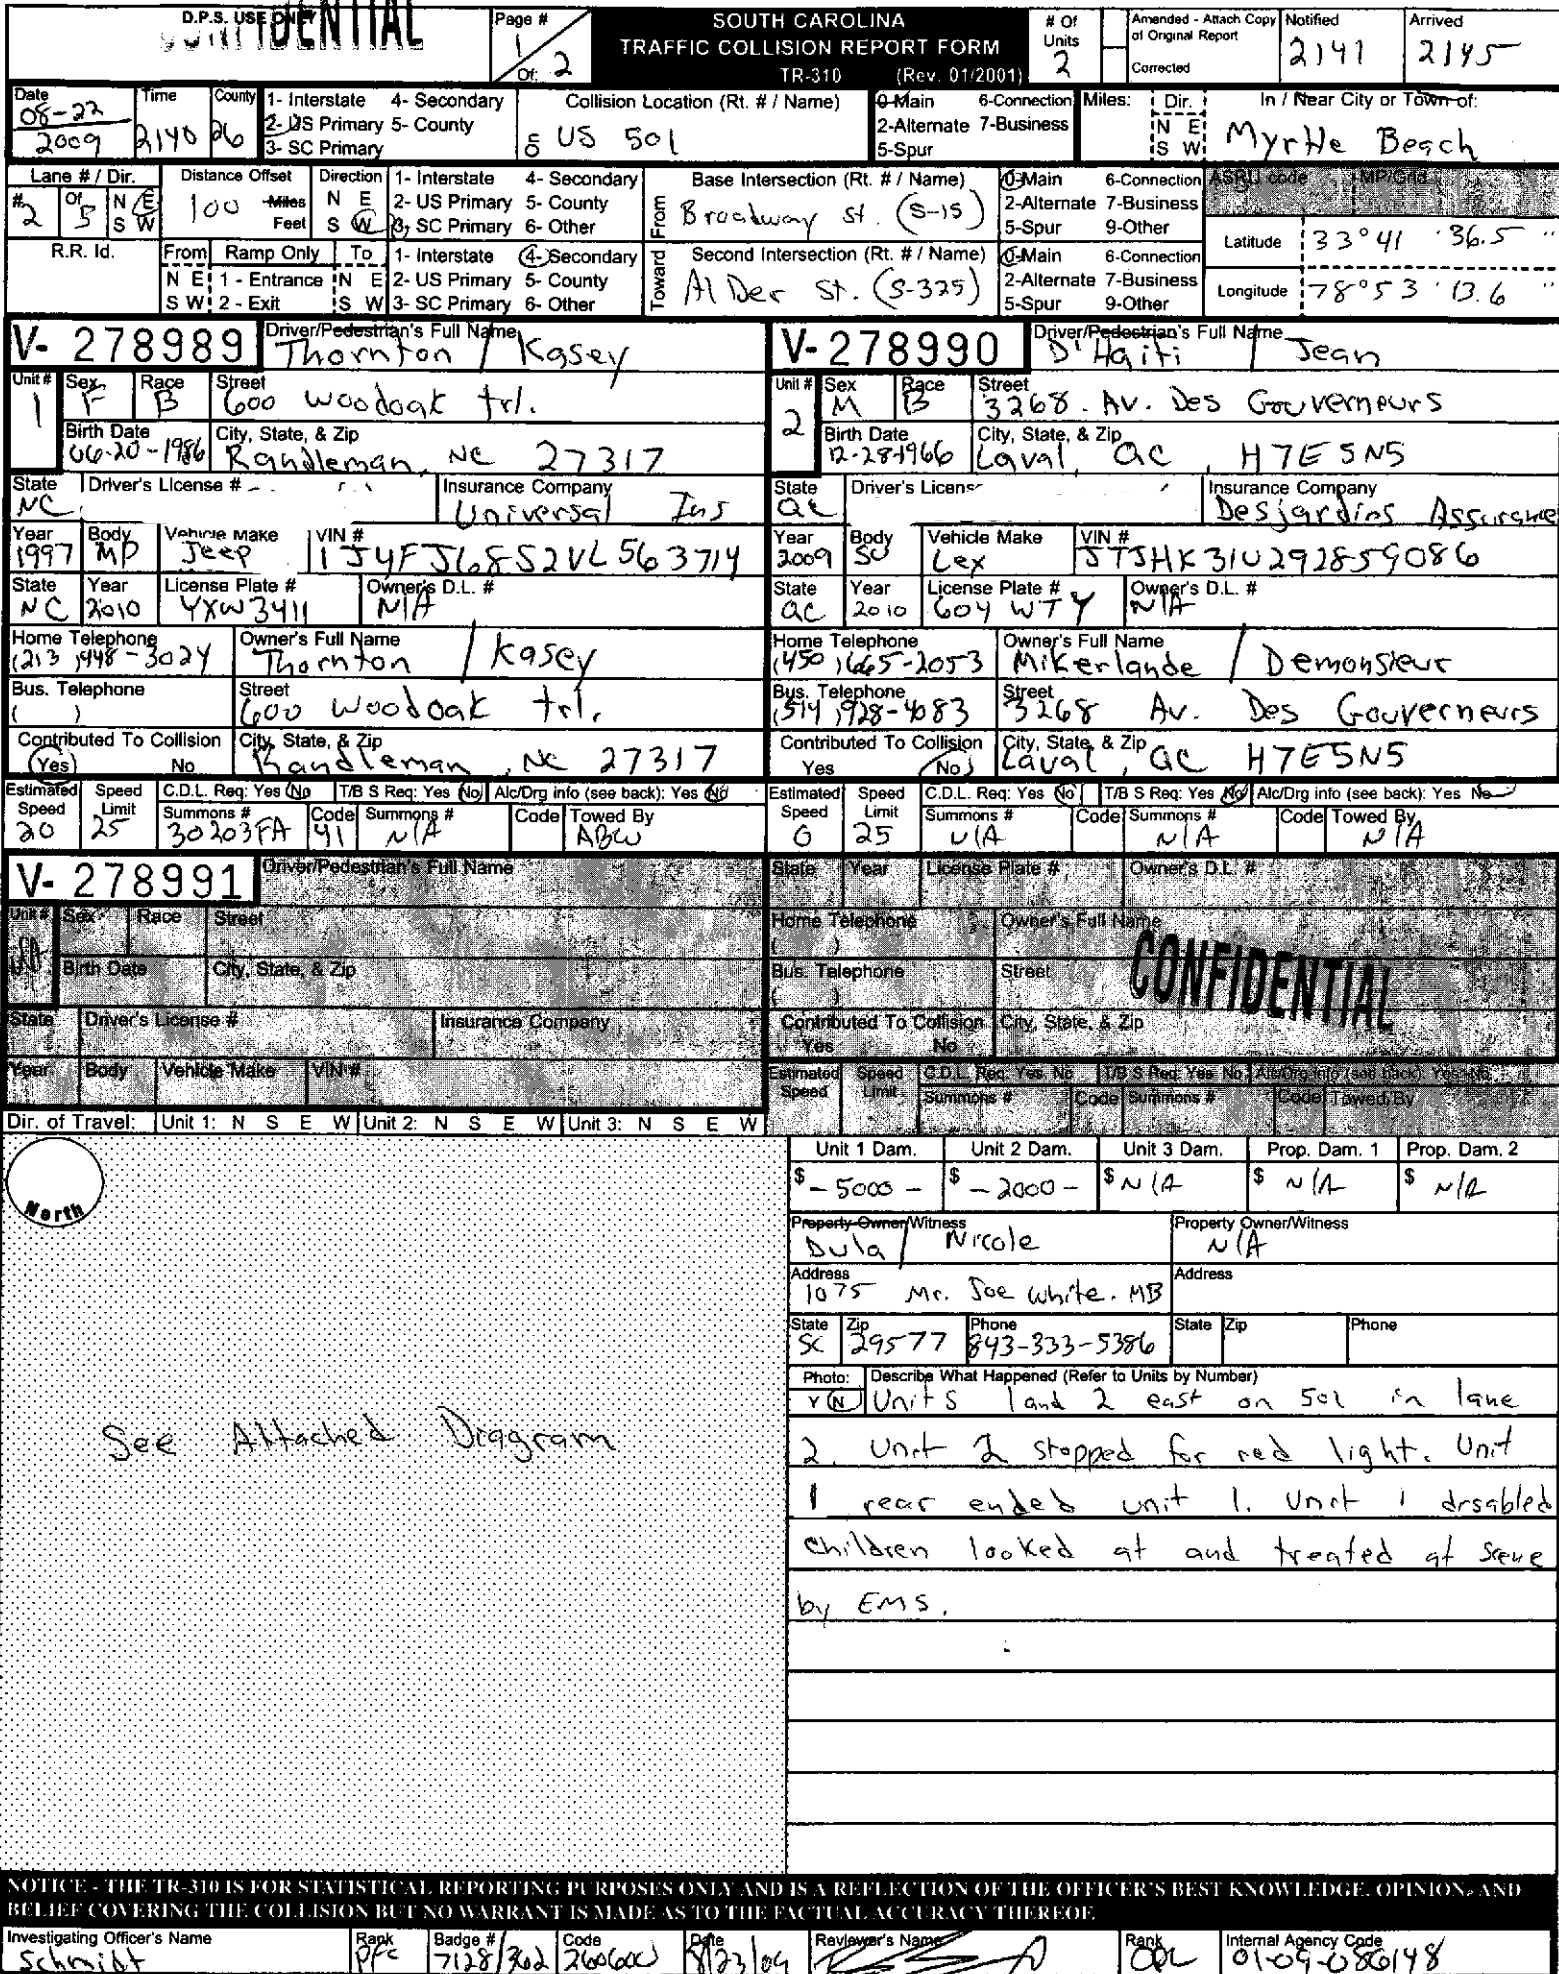 D.P.S. USE ONLY
CONFIDENTIAL
Page # 1 Of: 2
SOUTH CAROLINA
TRAFFIC COLLISION REPORT FORM
TR-310 (Rev. 01/2001)
# Of Units 2
Amended - Attach Copy of Original Report
Corrected
Notified 2141
Arrived 2145
Date 08-22 2009
Time 2140
County 26
1- Interstate 4- Secondary
2- US Primary 5- County
3- SC Primary
Collision Location (Rt. # / Name)
US 501
0-Main 6-Connection
2-Alternate 7-Business
5-Spur
Miles:
Dir. N E S W
In / Near City or Town of:
Myrtle Beach
Lane # / Dir.
# 2 Of 5 N E S W
Distance Offset
100 Miles Feet
Direction N E S W
1- Interstate 4- Secondary
2- US Primary 5- County
3- SC Primary 6- Other
From
Base Intersection (Rt. # / Name)
Broadway St. (S-15)
0-Main 6-Connection
2-Alternate 7-Business
5-Spur 9-Other
ASRU code MP/Grid
R.R. Id.
From Ramp Only To
N E 1 - Entrance N E
S W 2 - Exit S W
1- Interstate 4- Secondary
2- US Primary 5- County
3- SC Primary 6- Other
Toward
Second Intersection (Rt. # / Name)
Al Der St. (S-325)
0-Main 6-Connection
2-Alternate 7-Business
5-Spur 9-Other
Latitude 33° 41 ' 36.5 "
Longitude 78° 53 ' 13.6 "
V- 278989
Driver/Pedestrian's Full Name
Thornton / Kasey
Unit # 1
Sex F
Race B
Street 600 Woodoak trl.
Birth Date 06-20-1986
City, State, & Zip
Randleman, NC 27317
State NC
Driver's License #
Insurance Company
Universal Ins
Year 1997
Body MP
Vehicle Make Jeep
VIN # 1J4FJ68S2VL563714
State NC
Year 2010
License Plate # YXW3411
Owner's D.L. # N/A
Home Telephone (213) 448-3024
Owner's Full Name
Thornton / Kasey
Bus. Telephone ( )
Street 600 Woodoak trl.
Contributed To Collision
Yes No
City, State, & Zip
Randleman, NC 27317
Estimated Speed 20
Speed Limit 25
C.D.L. Req: Yes No T/B S Req: Yes No Alc/Drg info (see back): Yes No
Summons # 30203FA
Code 41
Summons # N/A
Code
Towed By ABW
V- 278990
Driver/Pedestrian's Full Name
D'Haiti / Jean
Unit # 2
Sex M
Race B
Street 3268. Av. Des Gouverneurs
Birth Date 12-28-1966
City, State, & Zip
Laval, QC, H7E5N5
State QC
Driver's Licens
Insurance Company
Desjardins Assurance
Year 2009
Body SU
Vehicle Make Lex
VIN # JTJHK31U292859086
State QC
Year 2010
License Plate # 604 WTY
Owner's D.L. # N/A
Home Telephone (450) 665-2053
Owner's Full Name
Mikerlande / Demonsieur
Bus. Telephone (514) 928-4083
Street 3268 Av. Des Gouverneurs
Contributed To Collision
Yes No
City, State, & Zip
Laval, QC H7E5N5
Estimated Speed 0
Speed Limit 25
C.D.L. Req: Yes No T/B S Req: Yes No Alc/Drg info (see back): Yes No
Summons # N/A
Code
Summons # N/A
Code
Towed By N/A
V- 278991
Driver/Pedestrian's Full Name
Unit # Sex Race Street
Birth Date City, State, & Zip
State Driver's License # Insurance Company
Year Body Vehicle Make VIN #
State Year License Plate # Owner's D.L. #
Home Telephone ( ) Owner's Full Name
Bus. Telephone ( ) Street
CONFIDENTIAL
Contributed To Collision City, State, & Zip
Yes No
Estimated Speed Speed Limit C.D.L. Req: Yes No T/B S Req: Yes No Alc/Drg info (see back): Yes No
Summons # Code Summons # Code Towed By
Dir. of Travel: Unit 1: N S E W Unit 2: N S E W Unit 3: N S E W
North
See Attached Diagram
Unit 1 Dam. Unit 2 Dam. Unit 3 Dam. Prop. Dam. 1 Prop. Dam. 2
$ - 5000 - $ - 2000 - $ N/A $ N/A $ N/A
Property Owner/Witness
Dula / Nicole
Property Owner/Witness
N/A
Address
1075 Mr. Joe White. MB
Address
State SC Zip 29577 Phone 843-333-5386
State Zip Phone
Photo: Y N
Describe What Happened (Refer to Units by Number)
Units 1 and 2 east on 501 in lane
2. Unit 2 stopped for red light. Unit
1 rear ended unit 1. Unit 1 disabled
children looked at and treated at scene
by EMS.
NOTICE - THE TR-310 IS FOR STATISTICAL REPORTING PURPOSES ONLY AND IS A REFLECTION OF THE OFFICER'S BEST KNOWLEDGE, OPINION, AND
BELIEF COVERING THE COLLISION BUT NO WARRANT IS MADE AS TO THE FACTUAL ACCURACY THEREOF.
Investigating Officer's Name Schmidt
Rank PFC
Badge # 7128/362
Code 2606000
Date 8/23/09
Reviewer's Name
Rank CPL
Internal Agency Code 01-09-086148